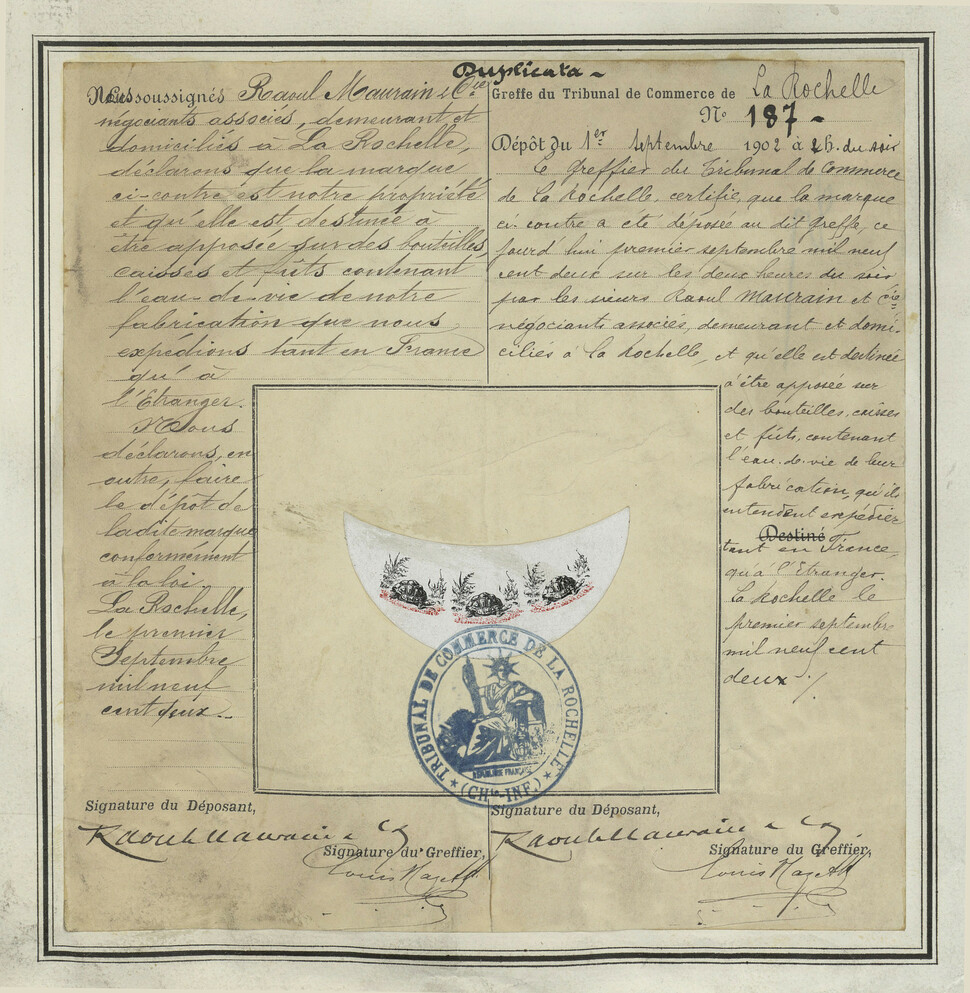 Duplicata
Nous soussignés Raoul Maurain & Cie
négociants associés, demeurant et
domiciliés à La Rochelle,
déclarons que la marque
ci-contre est notre propriété
et qu'elle est destinée à
être apposée sur des bouteilles,
caisses et fûts contenant
l'eau-de-vie de notre
fabrication que nous
expédions tant en France
qu'à
l'Etranger.
Nous
déclarons, en
outre, faire
le dépôt de
ladite marque
conformément
à la loi.
La Rochelle,
le premier
Septembre
mil neuf
cent deux.
Signature du Déposant,
Raoul Maurain & Cie
Signature du Greffier,
Greffe du Tribunal de Commerce de La Rochelle
No 187
Dépôt du 1er Septembre 1902 à 2h. du soir
Le Greffier du Tribunal de Commerce
de La Rochelle, certifie, que la marque
ci-contre a été déposée au dit Greffe, ce
jourd'hui premier septembre mil neuf
cent deux sur les deux heures du soir
par les sieurs Raoul Maurain et Cie
négociants associés, demeurant et domi-
ciliés à La Rochelle, et qu'elle est destinée
à être apposée sur
des bouteilles, caisses
et fûts, contenant
l'eau-de-vie de leur
fabrication, qu'ils
entendent expédier
Destiné
tant en France
qu'à l'Etranger.
La Rochelle le
premier septembre
mil neuf cent
deux
TRIBUNAL DE COMMERCE DE LA ROCHELLE
RÉPUBLIQUE FRANÇAISE
(CHte-INF.)
Signature du Déposant,
Raoul Maurain & Cie
Signature du Greffier,